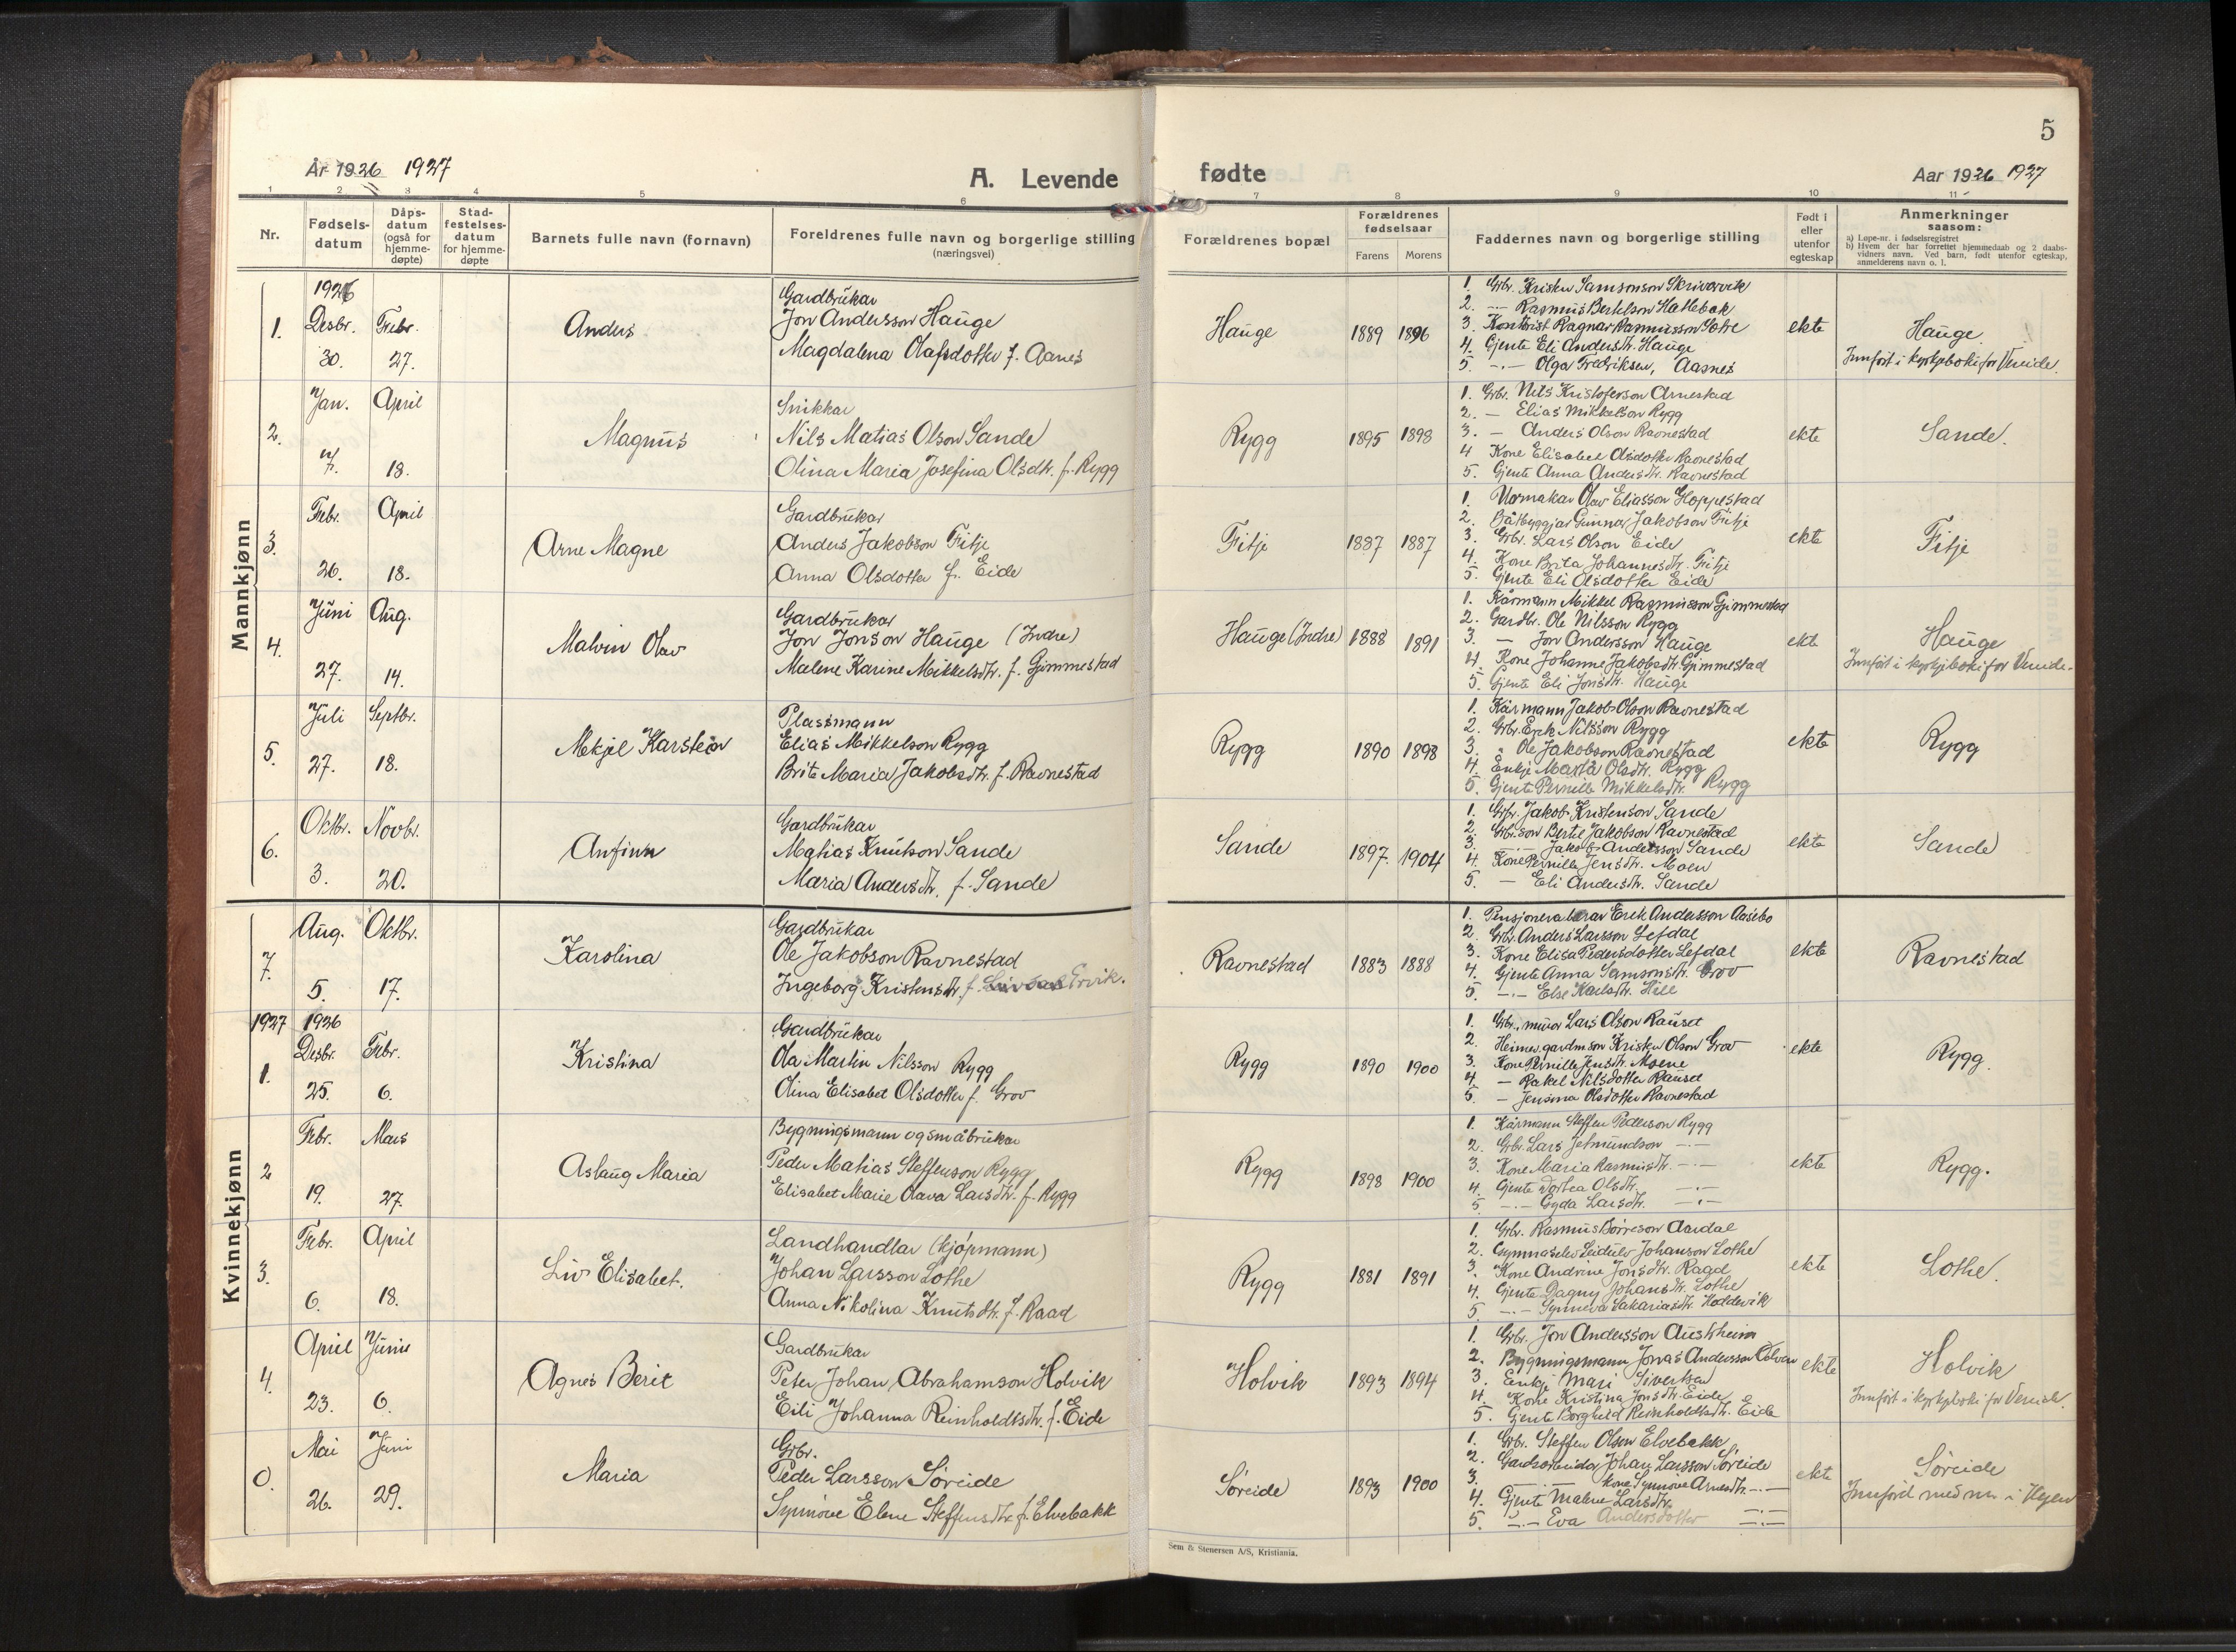 5
År 1926 1927
A. Levende
fødte
Aar 1926 1927
1 2 3 4 5 6 7 8 9 10 11
Nr.
Fødsels-datum
Dåps-datum (også for hjemme-døpte)
Stad-festelses-datum for hjemme-døpte
Barnets fulle navn (fornavn)
Foreldrenes fulle navn og borgerlige stilling
(næringsvei)
Forældrenes bopæl
Forældrenes fødselsaar
Farens Morens
Faddernes navn og borgerlige stilling
Født i eller utenfor egteskap
Anmerkninger saasom:
a) Løpe-nr. i fødselsregistret
b) Hvem der har forrettet hjemmedaab og 2 daabs-vidners navn. Ved barn, født utenfor egteskap, anmelderens navn o. l.
Mannkjønn
1. 1926 Desbr. 30. Febr. 27.
Anders
Gardbrukar
Jon Andersson Hauge
Magdalena Olafsdotter f. Aanes
Hauge 1889 1896
1. Grbr. Kristen Samsonson Skrivarvik
2. -·- Rasmus Bertelson Hatlebak
3. Kontorist Ragnar Rasmusson Sætre
4. Gjenta Eli Andersdtr. Hauge
5. -·- Olga Fredriksen, Aasnes
ekte
Hauge
Innført i kyrkjeboki for Vereide.
2. Jan. 7. April 18.
Magnus
Snikkar
Nils Matias Olson Sande
Olina Maria Josefina Olsdtr. f. Rygg
Rygg 1895 1898
1. Grbr. Nils Kristoferson Arnestad
2. — Elias Mikkelson Rygg
3. — Anders Olson Ravnestad
4 Kone Elisabet Olsdotter Ravnestad
5. Gjenta Anna Andersdtr. Ravnestad
ekte
Sande.
3. Febr. 26. April 18.
Arne Magne
Gardbrukar
Anders Jakobson Fitje
Anna Olsdotter f. Eide
Fitje 1887 1887
1. Urmakar Olav Eliasson Hoppestad
2. Båtbyggjar Gunnar Jakobson Fitje
3. Grbr. Lars Olson Eide
4. Kone Brita Johannesdtr. Fitje
5. Gjente Eli Olsdotter Eide
ekte
Fitje
4. Juni 27. Aug. 14.
Malvin Olav
Gardbrukar
Jon Jonson Hauge (Indre)
Malene Karine Mikkelsdtr. f. Gimmestad
Hauge (Indre) 1888 1891
1. Kårmann Mikkel Rasmusson Gimmestad
2. Gardbr. Ole Nilsson Rygg
3. — Jon Andersson Hauge
4. Kone Johanne Jakobsdtr. Gimmestad
5. Gjenta Eli Jonsdtr. Hauge
ekte
Hauge
Innført i kyrkjeboki for Vereide.
5. Juli 27. Septbr. 18.
Mekjel Karstein
Plassmann
Elias Mikkelson Rygg
Brite Maria Jakobsdtr. f. Ravnestad
Rygg 1890 1898
1. Kårmann Jakob Olson Ravnestad
2. Grbr. Eirik Nilsson Rygg
3. " Ole Jakobson Ravnestad
4. Enkje Marta Olsdtr. Rygg
5. Gjenta Pernille Mikkelsdtr. Rygg
ekte
Rygg
6. Oktbr. 3. Novbr. 20.
Anfinn
Gardbrukar
Matias Knutson Sande
Maria Andersdtr. f. Sande
Sande 1897. 1904
1. Grbr. Jakob Kristenson Sande
2. Grbr.son Bertel Jakobson Ravnestad
3. -·- Jakob Andersson Sande
4. Kone Pernille Jensdtr. Moen
5. — Eli Andersdtr. Sande
ekte
Sande
Kvinnekjønn
7. Aug. 5. Oktbr. 17.
Karolina
Gardbrukar
Ole Jakobson Ravnestad
Ingeborg Kristensdtr. f. Ervik.
Ravnestad 1883 1888
1. Erek Andersson Aasebø
2. Grbr. Anders Larsson Lefdal
3. Kone Elisa Pedersdotter Lefdal
4. Gjente Anna Samsonsdtr. Grov
5. -·- Else Karlsdtr. Hille
ekte
Ravnestad
1927 1. 1926 Desbr. 25. Febr. 6.
Kristina
Gardbrukar
Ola Martin Nilsson Rygg
Olina Elisabet Olsdotter f. Grov
Rygg 1890 1900
1. Grbr., murar Lars Olson Rauset
2. Heimev. gardmson Kristen Olson Grov
3. Kone Pernille Jensdtr. Moene
4. — Rakel Nilsdotter Rauset
5. — Jensina Olsdotter Ravnestad
ekte
Rygg.
2 Febr. 19. Mars 27.
Aslaug Maria
Bygningsmann og småbrukar
Peder Matias Steffenson Rygg
Elisabet Marie Olava Larsdtr. f. Rygg
Rygg 1898 1900
1. Kårmann Steffen Pederson Rygg
2. Grbr. Lars Jetmundson -·-
3. Kone Maria Rasmusdtr. -·-
4. Gjente Dortea Olsdtr. -·-
5 -·- Gyda Larsdtr. -·-
ekte
Rygg.
3. Febr. 6. April 18.
Liv Elisabet.
Landhandlar (kjøpmann)
Johan Larsson Lothe
Anna Nikolina Knutsdtr. f. Raad
Rygg 1881 1891
1. Grbr. Rasmus Børreson Aardal
2. Gymnaselev Leidulv Johanson Lothe
3. Kone Andrine Jonsdtr. Raad
4. Gjente Dagny Johansdtr. Lothe
5 -·- Synneva Sakariasdtr. Hoddevik
ekte
Lothe.
4. April 23. Juni 6.
Agnes Berit
Gardbrukar
Peter Johan Abrahamson Holvik
Eili Johanna Reinholdtsdtr. f. Eide
Holvik 1893 1894
1. Grbr. Jon Andersson Austrheim
2. Bygningsmann Jonas Andersson
3. Enkje Mari Sivertsen
4. Kone Kristina Jonsdtr. Eide
5. Gjenta Borghild Reinholdtsdtr. Eide
ekte
Holvik
Innført i kyrkjeboki for Vereide.
0. Mai 26. Juni 29.
Maria
Grbr.
Peder Larsson Søreide
Synnøve Elene Steffensdtr. f. Elvebakk
Søreide 1893 1900
1. Grbr. Steffen Olson Elvebakk
2. Gardsarbeidar Johan Larsson Søreide
3. -·- kone Synnøve Arnesdtr. -·-
4. Gjente Malene Larsdtr.
5. -·- Eva Andersdotter -·-
ekte
Søreide
Innførd med nr. i
Sem & Stenersen A/S, Kristiania.